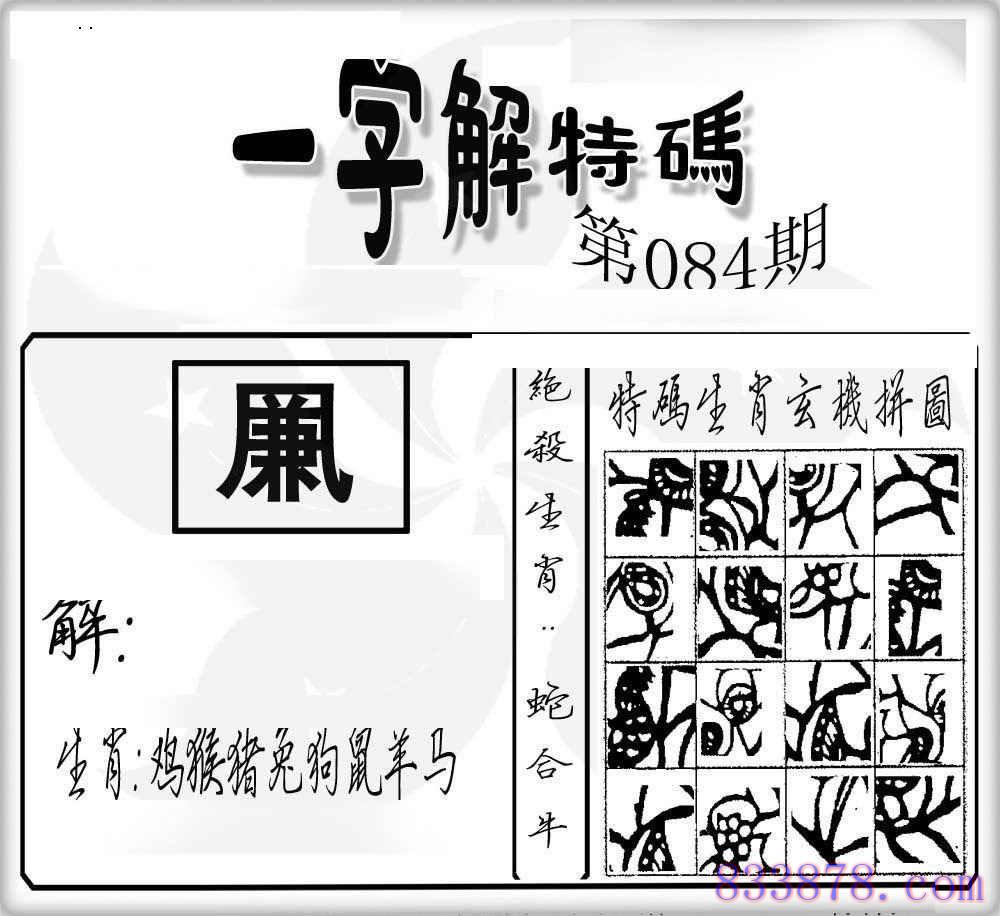 一字解特碼
第084期
解:
生肖:鸡猴猪兔狗鼠羊马
絕殺生肖:蛇合牛
特碼生肖玄機拼圖
833878.com